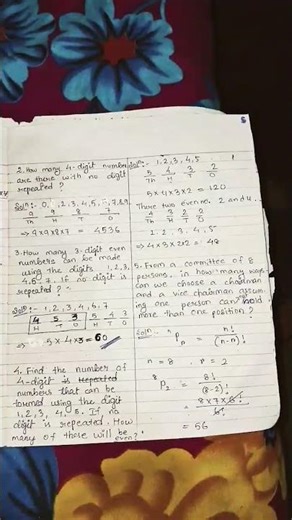 5
2. How many 4-digit numbers
are there with no digit
repeated ?
Soln :- 0, 1,2,3,4,5,6,7,8,9
9 9 8 7
Th H T O
⇒ 9x9x8x7 = 4536
3. How many 3-digit even
numbers can be made
using the digits 1,2,3,
4,6,7. If no digit is
repeated ? -
Soln :- 1, 2, 3, 4, 6, 7
4 5 3 5 4 7
H T O H T O
⇒ 5 x 4 x 3 = 60
4. Find the number of
4-digit is repeated
numbers that can be
formed using the digit
1,2,3, 4, 5. If no
digit is repeated. How
many of these will be
even?
Soln :- 1,2,3,4,5
5 4 3 2
Th H T O
5x4x3x2 = 120
There two even no, 2 and 4.
4 3 2 2
Th H T O
1, 2, 3, 4, 5
⇒ 4x3x2x2 = 48
5. From a committee of 8
persons, in how many ways
can we choose a chairman
and a vice chairman assum
ing one person can hold
more than one position?
Soln :- nPr = n! / (n-r)!
n = 8 . r = 2
8P2 = 8! / (8-2)!
= 8x7x6! / 6!
= 56